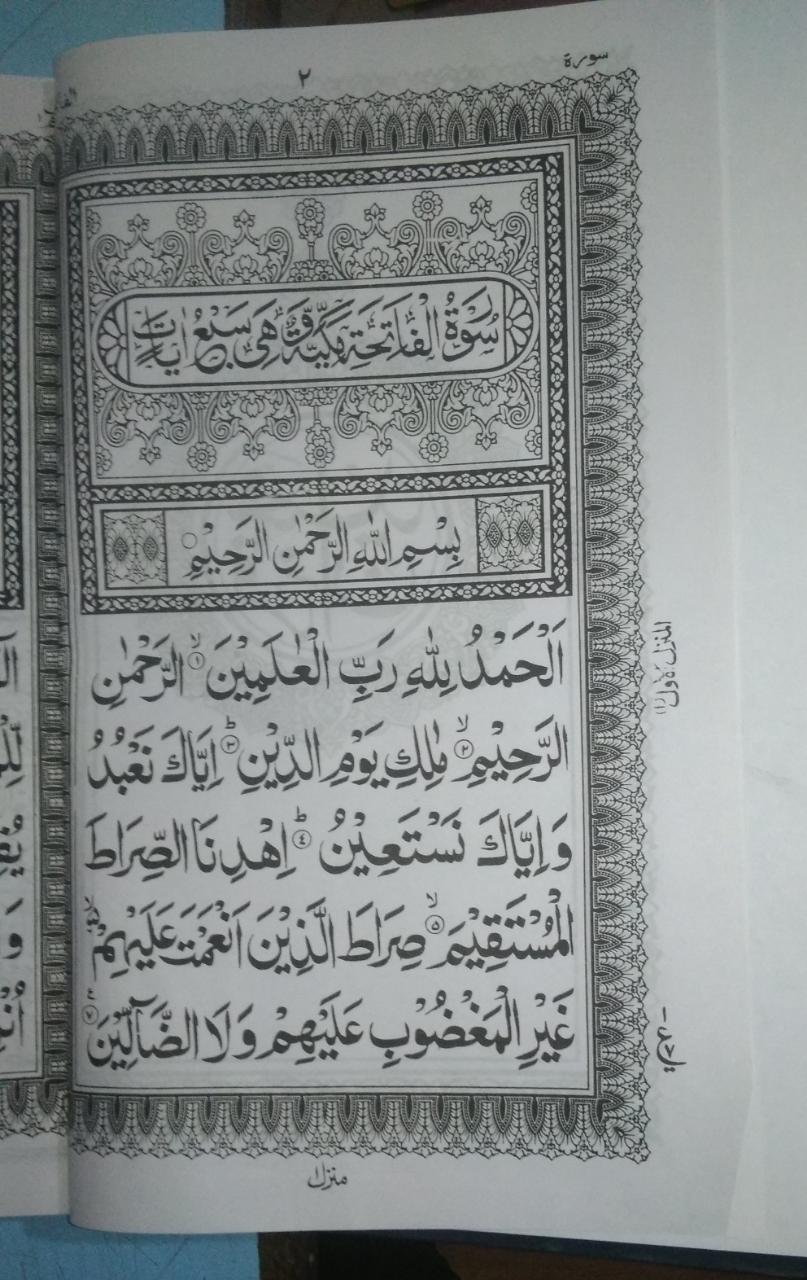 سورة
٢
سُوْرَةُ الْفَاتِحَةِ مَكِّيَّةٌ وَّهِيَ سَبْعُ اٰيَاتٍ
بِسْمِ اللّٰهِ الرَّحْمٰنِ الرَّحِيْمِ
اَلْحَمْدُ لِلّٰهِ رَبِّ الْعٰلَمِيْنَ ۙ﴿١﴾ الرَّحْمٰنِ
الرَّحِيْمِ ۙ﴿٢﴾ مٰلِكِ يَوْمِ الدِّيْنِ ؕ﴿٣﴾ اِيَّاكَ نَعْبُدُ
وَاِيَّاكَ نَسْتَعِيْنُ ؕ﴿٤﴾ اِهْدِنَا الصِّرَاطَ
الْمُسْتَقِيْمَ ۙ﴿٥﴾ صِرَاطَ الَّذِيْنَ اَنْعَمْتَ عَلَيْهِمْ
غَيْرِ الْمَغْضُوْبِ عَلَيْهِمْ وَلَا الضَّآلِّيْنَ ﴿٧﴾
المنزل الاول (١)
منزل ١